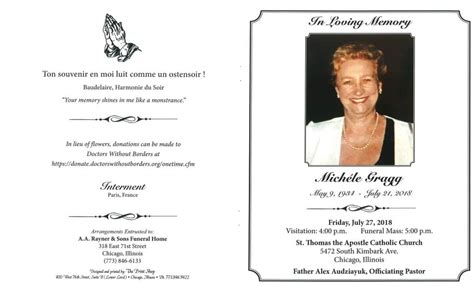 Ton souvenir en moi luit comme un ostensoir !
Baudelaire, Harmonie du Soir
"Your memory shines in me like a monstrance."
In lieu of flowers, donations can be made to
Doctors Without Borders at
https://donate.doctorswithoutborders.org/onetime.cfm
Interment
Paris, France
Arrangements Entrusted to:
A.A. Rayner & Sons Funeral Home
318 East 71st Street
Chicago, Illinois
(773) 846-6133
Designed and printed by: The Print Shop
Chicago, Illinois
In Loving Memory
Michéle Gragg
May 9, 1934 - July 21, 2018
Friday, July 27, 2018
Visitation: 4:00 p.m. Funeral Mass: 5:00 p.m.
St. Thomas the Apostle Catholic Church
5472 South Kimbark Ave.
Chicago, Illinois
Father Alex Audziayuk, Officiating Pastor